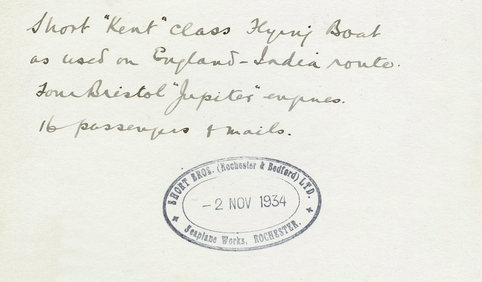 Short "Kent" class Flying Boat
as used on England-India route.
Four Bristol "Jupiter" engines.
16 passengers & mails.
SHORT BROS. (Rochester & Bedford) LTD.
-2 NOV 1934
Seaplane Works, ROCHESTER.